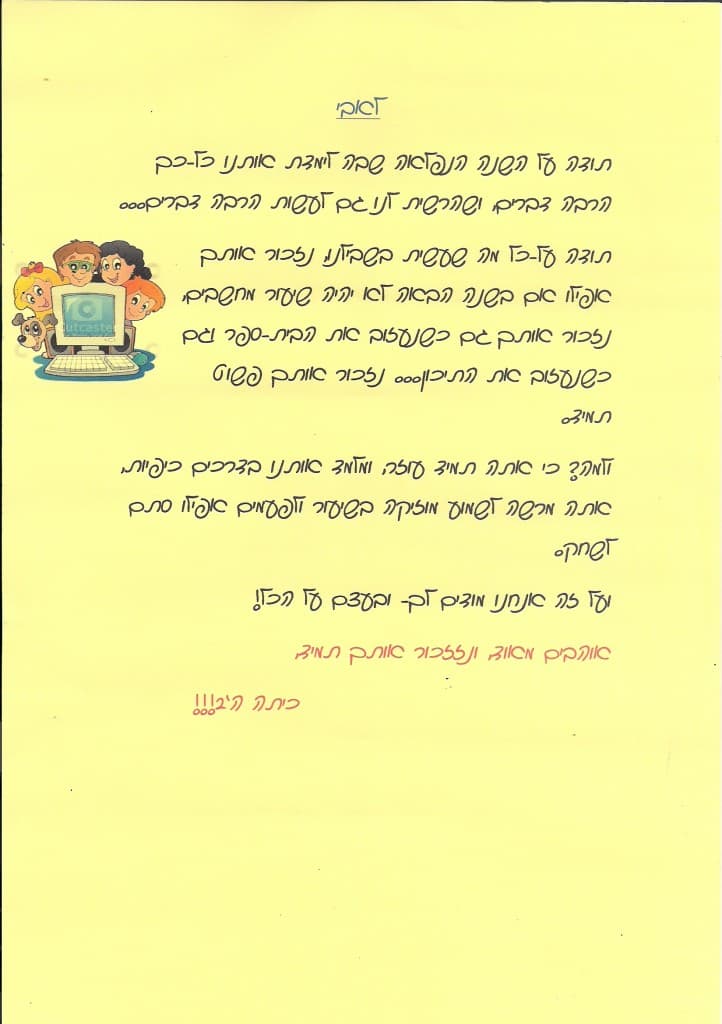 לאובי
תודה על השנה הנפלאה שבה לימדת אותנו כל-כך
הרבה דברים, ושהרשית לנו גם לעשות הרבה דברים...
תודה על-כל מה שעשית בשבילנו, נזכור אותך
אפילו אם בשנה הבאה לא יהיה שיעור מחשבים,
נזכור אותך גם כשנעזוב את הבית-ספר וגם
כשנעזוב את התיכון... נזכור אותך פשוט
תמיד.
ולמה? כי אתה תמיד עוזר, ומלמד אותנו בדרכים כיפיות,
אתה מרשה לשמוע מוזיקה בשיעור ולפעמים אפילו סתם
לשחק.
ועל זה אנחנו מודים לך- ובעצם על הכל!
אוהבים מאוד, ונזזכור אותך תמיד,
כיתה ה'ב!!!